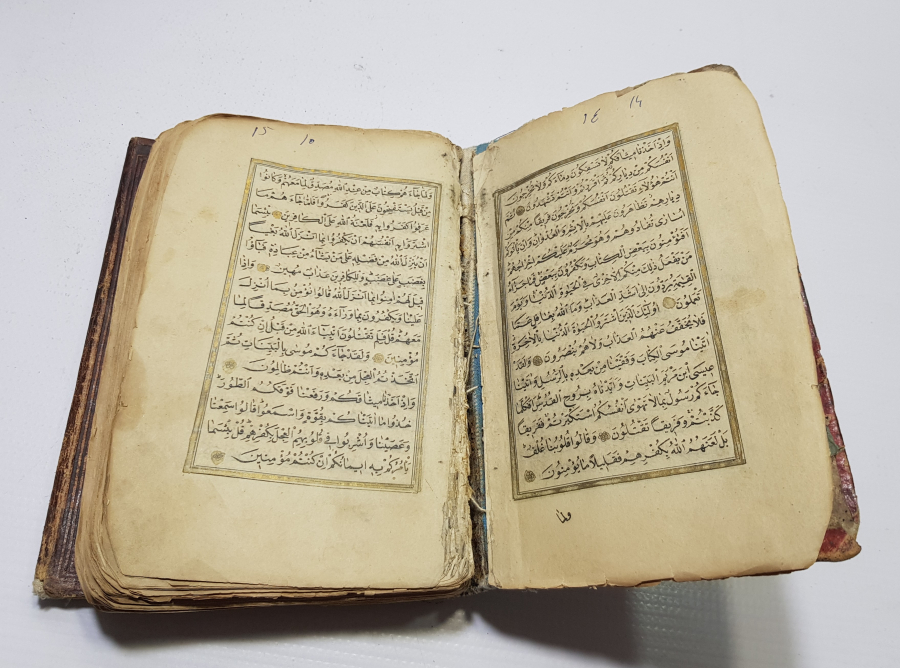 ١٤ 14
وَاِذْ اَخَذْنَا مِيثَاقَكُمْ لَا تَسْفِكُونَ دِمَاءَكُمْ وَلَا تُخْرِجُونَ
اَنْفُسَكُمْ مِنْ دِيَارِكُمْ ثُمَّ اَقْرَرْتُمْ وَاَنْتُمْ تَشْهَدُونَ ثُمَّ
اَنْتُمْ هٰؤُلَاءِ تَقْتُلُونَ اَنْفُسَكُمْ وَتُخْرِجُونَ فَرِيقًا مِنْكُمْ مِنْ
دِيَارِهِمْ تَظَاهَرُونَ عَلَيْهِمْ بِالْاِثْمِ وَالْعُدْوَانِ وَاِنْ يَاْتُوكُمْ
اُسَارٰى تُفَادُوهُمْ وَهُوَ مُحَرَّمٌ عَلَيْكُمْ اِخْرَاجُهُمْ
اَفَتُؤْمِنُونَ بِبَعْضِ الْكِتَابِ وَتَكْفُرُونَ بِبَعْضٍ فَمَا جَزَاءُ
مَنْ يَفْعَلُ ذٰلِكَ مِنْكُمْ اِلَّا خِزْيٌ فِي الْحَيٰوةِ الدُّنْيَا وَيَوْمَ
الْقِيٰمَةِ يُرَدُّونَ اِلٰى اَشَدِّ الْعَذَابِ وَمَا اللّٰهُ بِغَافِلٍ عَمَّا
تَعْمَلُونَ اُولٰئِكَ الَّذِينَ اشْتَرَوُا الْحَيٰوةَ الدُّنْيَا بِالْاٰخِرَةِ
فَلَا يُخَفَّفُ عَنْهُمُ الْعَذَابُ وَلَا هُمْ يُنْصَرُونَ وَلَقَدْ
اٰتَيْنَا مُوسَى الْكِتَابَ وَقَفَّيْنَا مِنْ بَعْدِهِ بِالرُّسُلِ وَاٰتَيْنَا
عِيسَى ابْنَ مَرْيَمَ الْبَيِّنَاتِ وَاَيَّدْنَاهُ بِرُوحِ الْقُدُسِ اَفَكُلَّمَا
جَاءَكُمْ رَسُولٌ بِمَا لَا تَهْوٰى اَنْفُسُكُمُ اسْتَكْبَرْتُمْ فَفَرِيقًا
كَذَّبْتُمْ وَفَرِيقًا تَقْتُلُونَ وَقَالُوا قُلُوبُنَا غُلْفٌ
بَلْ لَعَنَهُمُ اللّٰهُ بِكُفْرِهِمْ فَقَلِيلًا مَا يُؤْمِنُونَ
ولما
15 ١٥
وَلَمَّا جَاءَهُمْ كِتَابٌ مِنْ عِنْدِ اللّٰهِ مُصَدِّقٌ لِمَا مَعَهُمْ وَكَانُوا
مِنْ قَبْلُ يَسْتَفْتِحُونَ عَلَى الَّذِينَ كَفَرُوا فَلَمَّا جَاءَهُمْ مَا
عَرَفُوا كَفَرُوا بِهِ فَلَعْنَةُ اللّٰهِ عَلَى الْكَافِرِينَ بِئْسَمَا
اشْتَرَوْا بِهِ اَنْفُسَهُمْ اَنْ يَكْفُرُوا بِمَا اَنْزَلَ اللّٰهُ بَغْيًا
اَنْ يُنَزِّلَ اللّٰهُ مِنْ فَضْلِهِ عَلٰى مَنْ يَشَاءُ مِنْ عِبَادِهِ فَبَاؤُ
بِغَضَبٍ عَلٰى غَضَبٍ وَلِلْكَافِرِينَ عَذَابٌ مُهِينٌ وَاِذَا
قِيلَ لَهُمْ اٰمِنُوا بِمَا اَنْزَلَ اللّٰهُ قَالُوا نُؤْمِنُ بِمَا اُنْزِلَ
عَلَيْنَا وَيَكْفُرُونَ بِمَا وَرَاءَهُ وَهُوَ الْحَقُّ مُصَدِّقًا لِمَا
مَعَهُمْ قُلْ فَلِمَ تَقْتُلُونَ اَنْبِيَاءَ اللّٰهِ مِنْ قَبْلُ اِنْ كُنْتُمْ
مُؤْمِنِينَ وَلَقَدْ جَاءَكُمْ مُوسٰى بِالْبَيِّنَاتِ ثُمَّ
اتَّخَذْتُمُ الْعِجْلَ مِنْ بَعْدِهِ وَاَنْتُمْ ظَالِمُونَ
وَاِذْ اَخَذْنَا مِيثَاقَكُمْ وَرَفَعْنَا فَوْقَكُمُ الطُّورَ
خُذُوا مَا اٰتَيْنَاكُمْ بِقُوَّةٍ وَاسْمَعُوا قَالُوا سَمِعْنَا
وَعَصَيْنَا وَاُشْرِبُوا فِي قُلُوبِهِمُ الْعِجْلَ بِكُفْرِهِمْ قُلْ بِئْسَمَا
يَاْمُرُكُمْ بِهِ اِيمَانُكُمْ اِنْ كُنْتُمْ مُؤْمِنِينَ